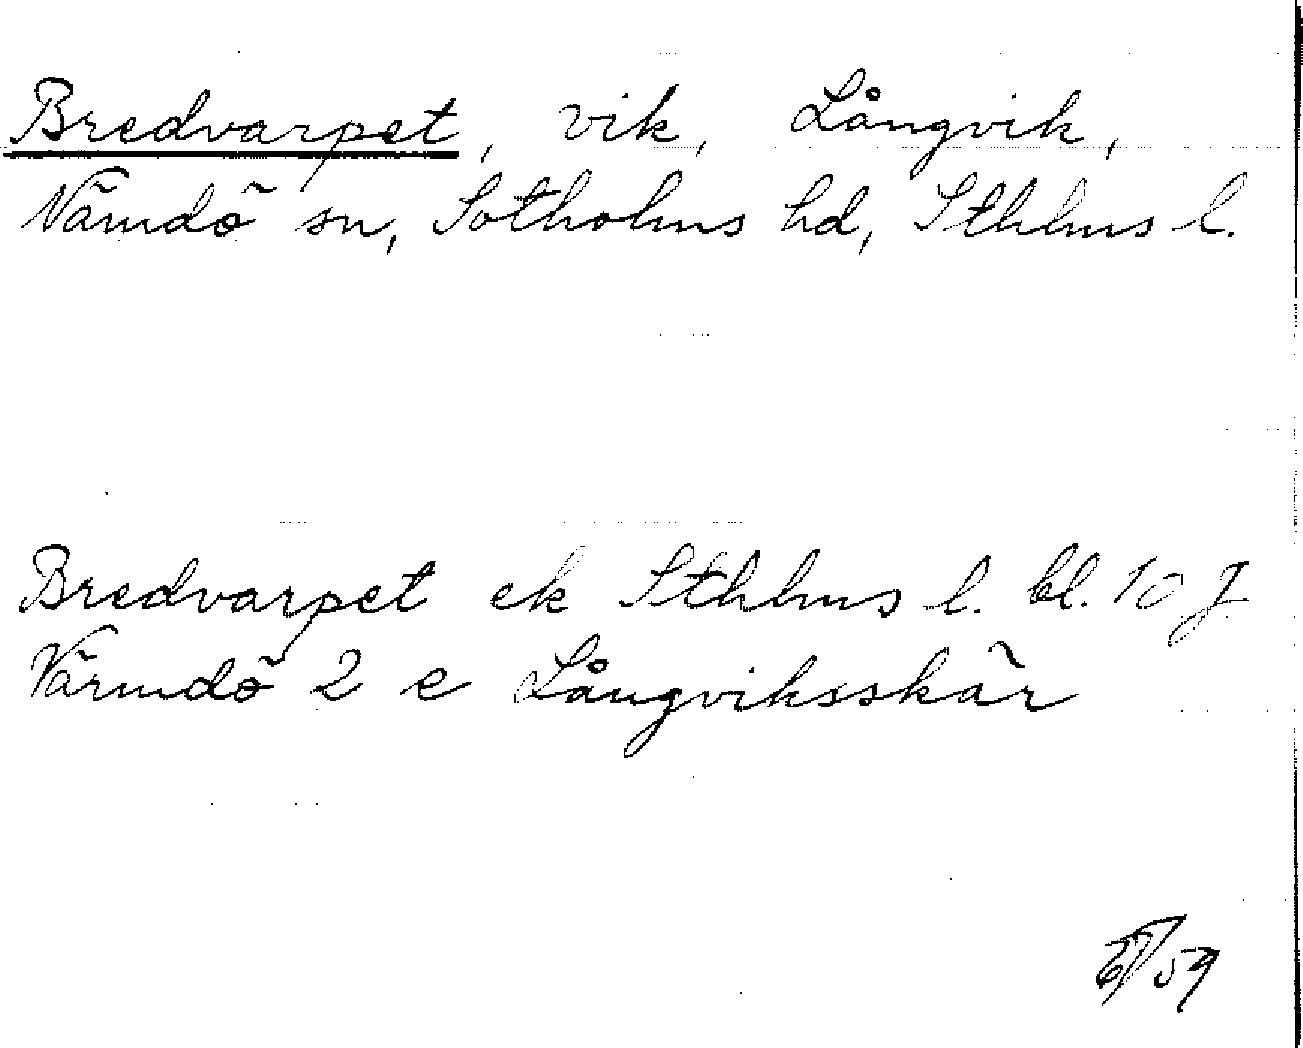 Bredvarpet, vik, Långvik,
Nämdö sn, Sotholms hd, Sthlms l.
Bredvarpet ek Sthlms l. bl. 10 J
Värmdö 2 e Långviksskär